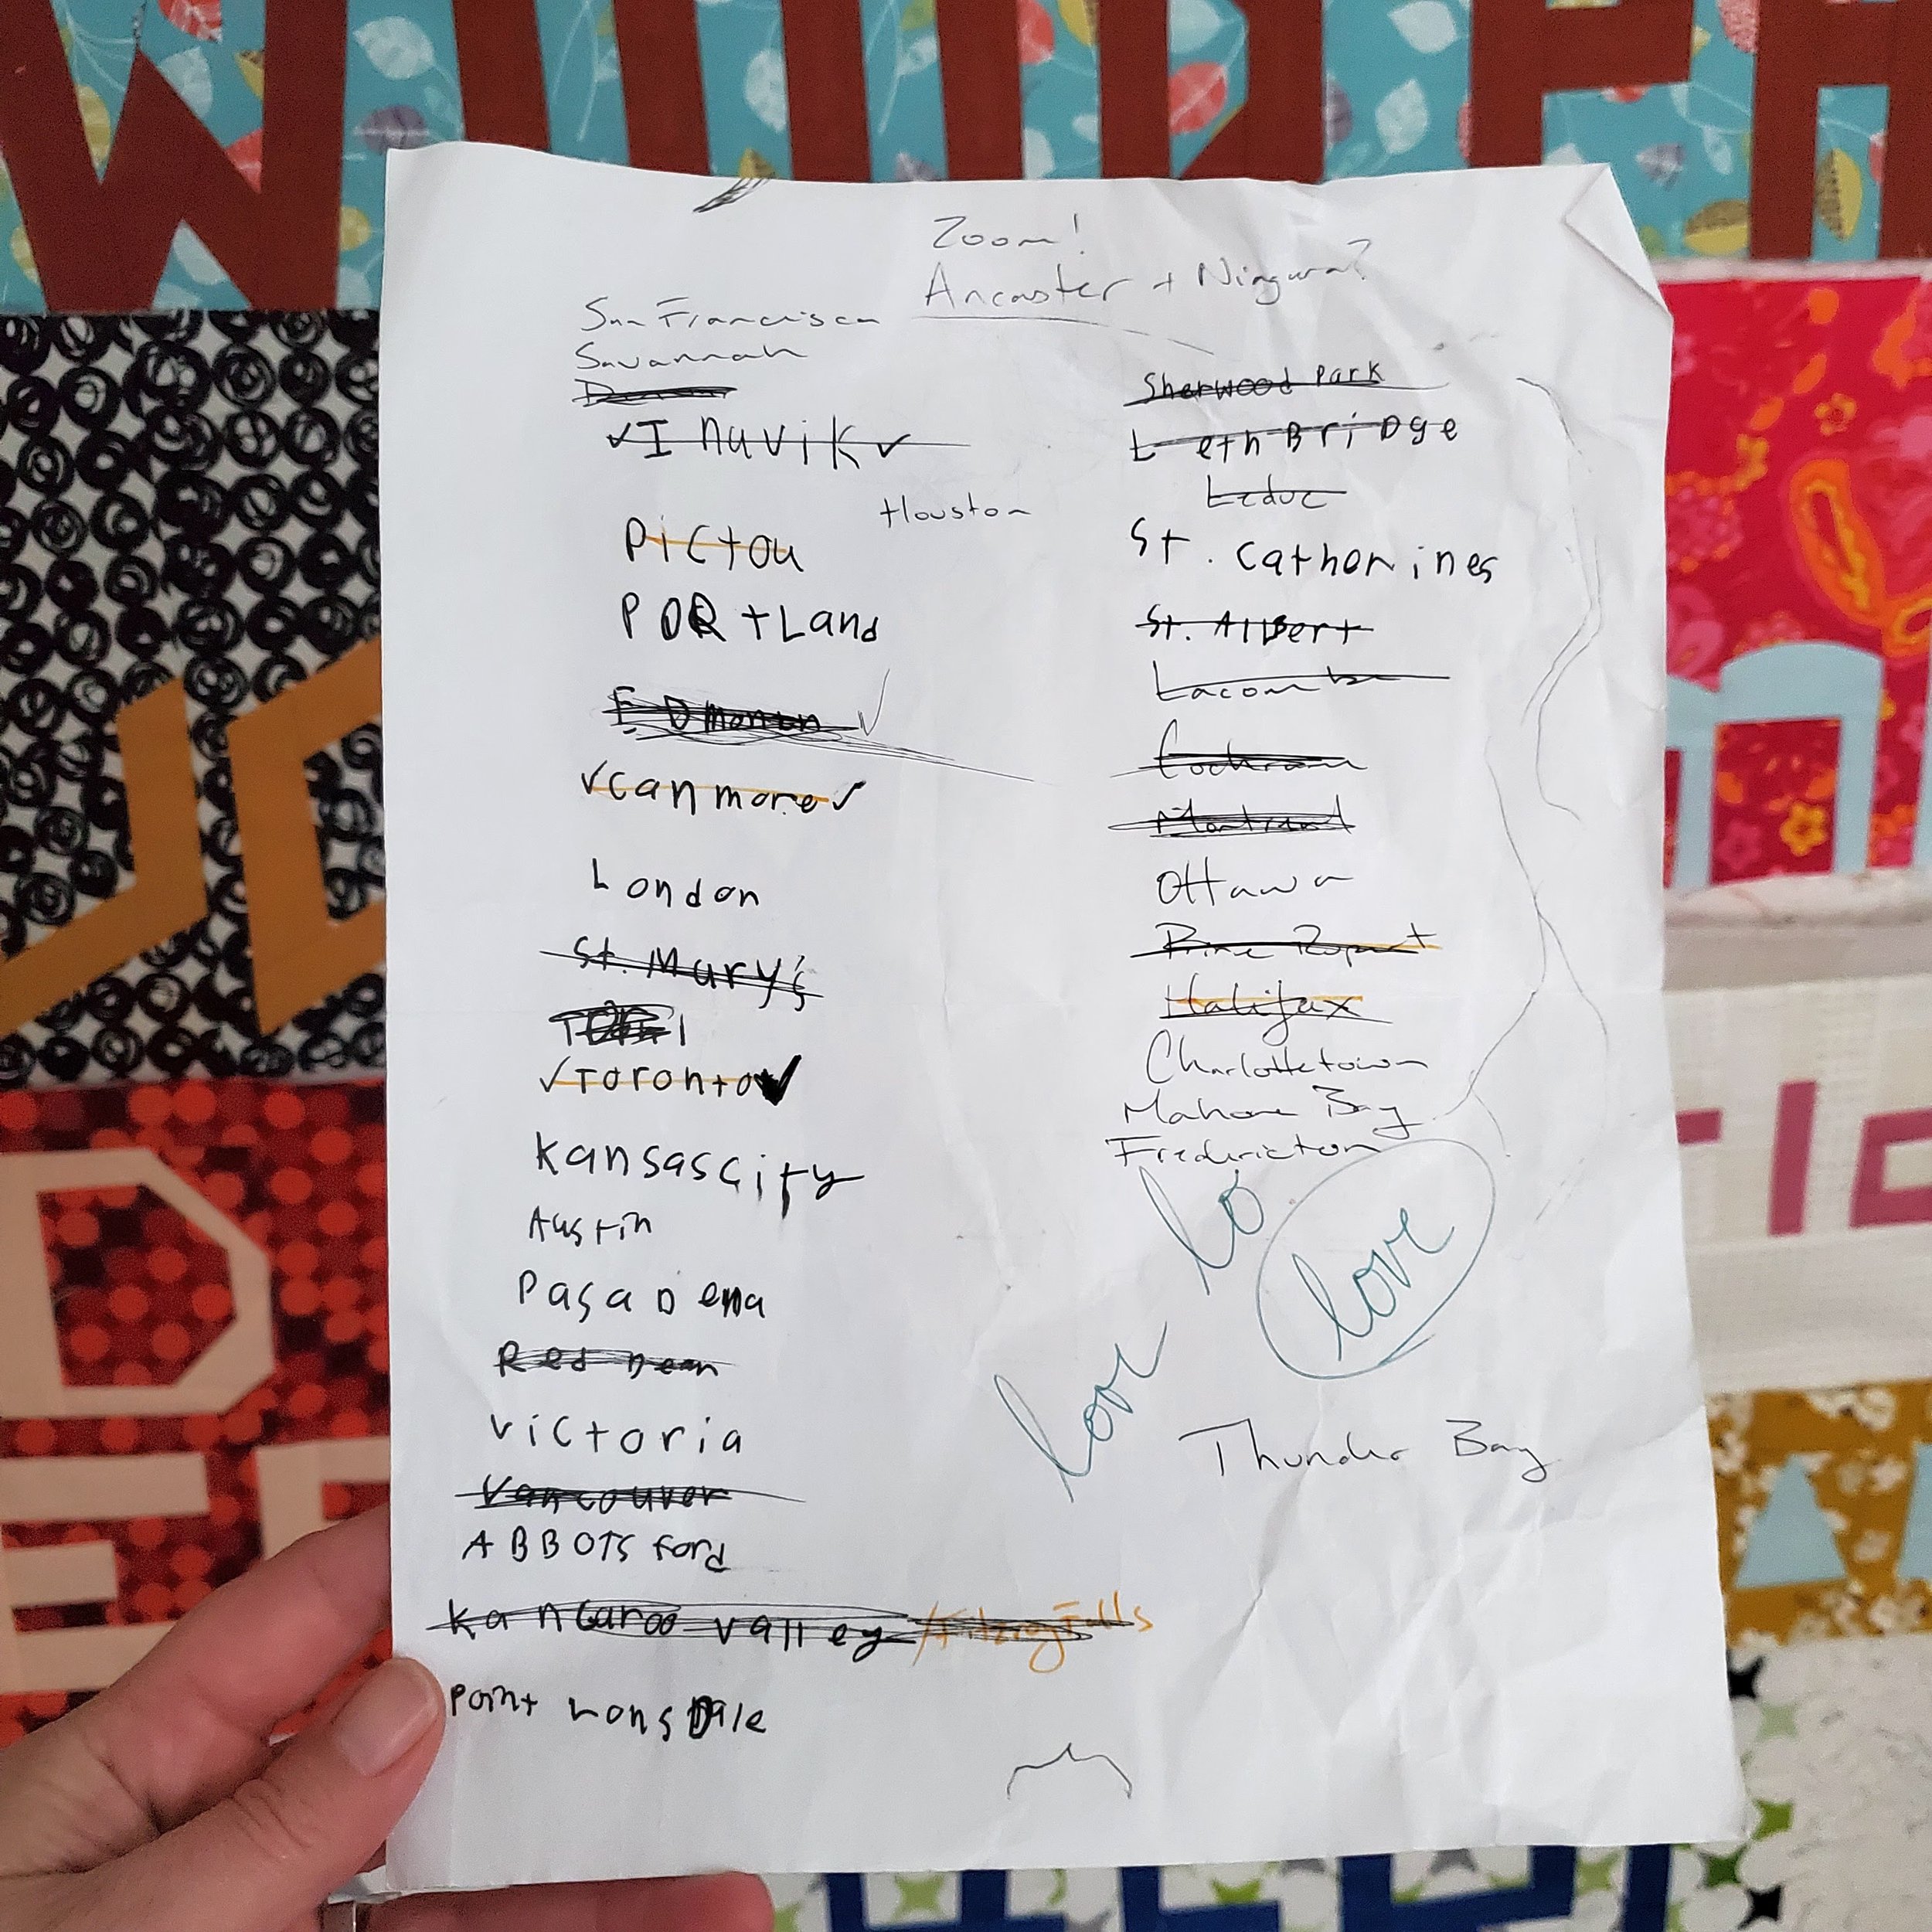 Zoom!
Ancaster + Niagara?
San Francisco
Savannah
✓Inuvik✓
Houston
Pictou
PORtLand
EDmonton ✓
✓Canmore✓
London
St. Mary's
✓Toronto✓
Kansas City
Austin
PasaDena
Red Deer
Victoria
Vancouver
ABBOTSford
Kangaroo Valley /Fitzroy Falls
Point LonsDale
Sherwood Park
LethBriDge
Leduc
St. Catherines
St. AlBert
Lacombe
Cochrane
Montreal
Ottawa
Prince Rupert
Halifax
Charlottetown
Mahone Bay
Fredericton
lo
love
love
Thunder Bay